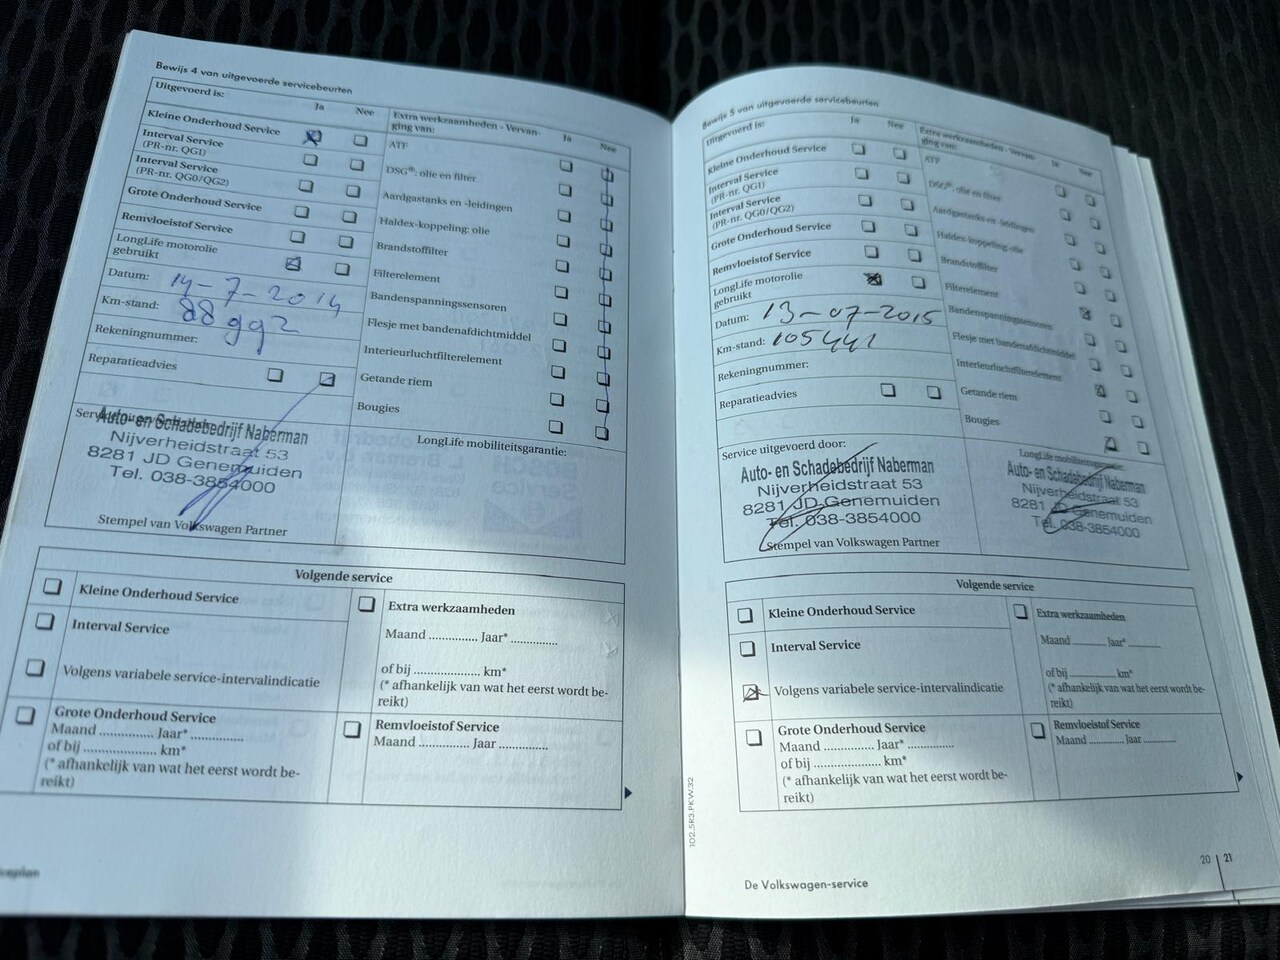 Bewijs 4 van uitgevoerde servicebeurten
Uitgevoerd is:
Ja
Nee
Kleine Onderhoud Service
Interval Service
(PR-nr. QG1)
Interval Service
(PR-nr. QG0/QG2)
Grote Onderhoud Service
Remvloeistof Service
LongLife motorolie
gebruikt
Datum: 14-7-2014
Km-stand: 88992
Rekeningnummer:
Reparatieadvies
Extra werkzaamheden - Vervan-
ging van:
Ja
Nee
ATF
DSG®: olie en filter
Aardgastanks en -leidingen
Haldex-koppeling: olie
Brandstoffilter
Filterelement
Bandenspanningssensoren
Flesje met bandenafdichtmiddel
Interieurluchtfilterelement
Getande riem
Bougies
Auto- en Schadebedrijf Naberman
Nijverheidstraat 53
8281 JD Genemuiden
Tel. 038-3854000
Stempel van Volkswagen Partner
LongLife mobiliteitsgarantie:
Volgende service
Kleine Onderhoud Service
Interval Service
Volgens variabele service-intervalindicatie
Grote Onderhoud Service
Maand ............... Jaar* ...............
of bij .................... km*
(* afhankelijk van wat het eerst wordt be-
reikt)
Extra werkzaamheden
Maand ............... Jaar* ...............
of bij .................... km*
(* afhankelijk van wat het eerst wordt be-
reikt)
Remvloeistof Service
Maand ............... Jaar ...............
Bewijs 5 van uitgevoerde servicebeurten
Uitgevoerd is:
Ja
Nee
Kleine Onderhoud Service
Interval Service
(PR-nr. QG1)
Interval Service
(PR-nr. QG0/QG2)
Grote Onderhoud Service
Remvloeistof Service
LongLife motorolie
gebruikt
Datum: 13-07-2015
Km-stand: 105441
Rekeningnummer:
Reparatieadvies
Extra werkzaamheden - Vervan-
ging van:
Ja
Nee
ATF
DSG®: olie en filter
Aardgastanks en -leidingen
Haldex-koppeling: olie
Brandstoffilter
Filterelement
Bandenspanningssensoren
Flesje met bandenafdichtmiddel
Interieurluchtfilterelement
Getande riem
Bougies
Service uitgevoerd door:
Auto- en Schadebedrijf Naberman
Nijverheidstraat 53
8281 JD Genemuiden
Tel. 038-3854000
Stempel van Volkswagen Partner
LongLife
Auto- en Schadebedrijf Naberman
Nijverheidstraat 53
8281 JD Genemuiden
Tel. 038-3854000
Volgende service
Kleine Onderhoud Service
Interval Service
Volgens variabele service-intervalindicatie
Grote Onderhoud Service
Maand ............... Jaar* ...............
of bij .................... km*
(* afhankelijk van wat het eerst wordt be-
reikt)
Extra werkzaamheden
Maand ............ Jaar* ............
of bij .................... km*
(* afhankelijk van wat het eerst wordt be-
reikt)
Remvloeistof Service
Maand ............ Jaar ............
102.5R3.PKW.32
De Volkswagen-service
20 | 21